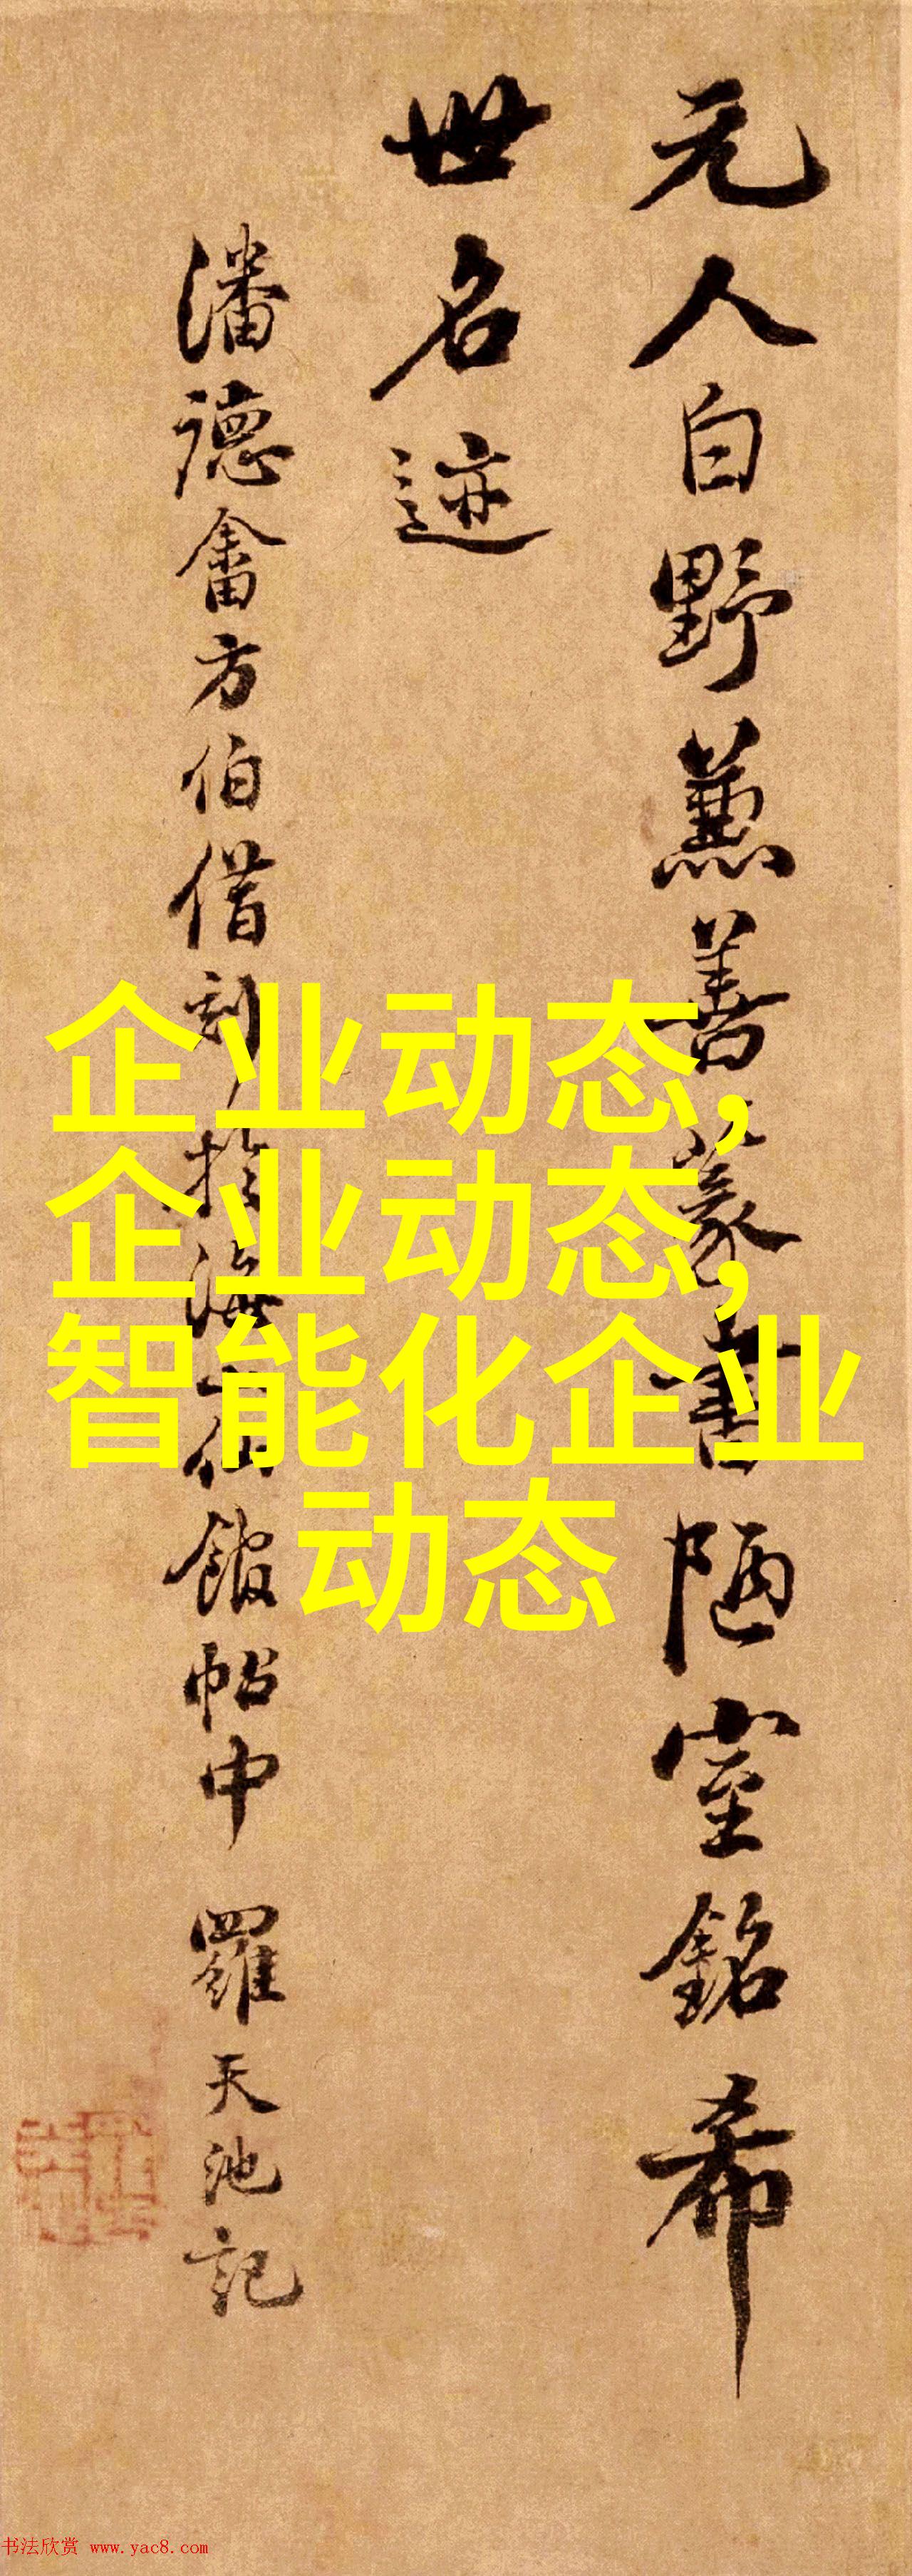 元人白野兼善篆書陋室銘希
世名迹
潘德畬方伯借刻於海山仙館帖中 羅天池記
企业动态,
企业动态,
智能化企业
动态
书法欣赏 www.yac8.com